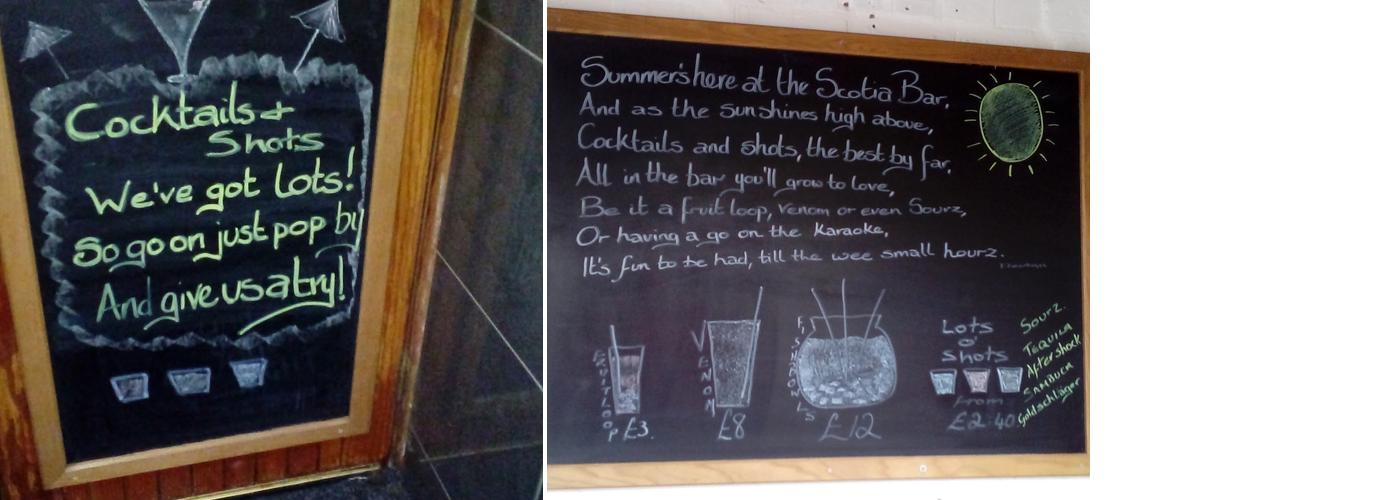 Cocktails +
Shots
We've got lots!
So go on just pop by
And give us a try!
Summer's here at the Scotia Bar,
And as the sun shines high above,
Cocktails and shots, the best by far,
All in the bar you'll grow to love,
Be it a fruit loop, venom or even Sourz,
Or having a go on the Karaoke,
It's fun to be had, till the wee small hourz.
FRUIT LOOP
£3.
VENOM
£8
FISHBOWLS
£12
Lots
o'
Shots
from
£2.40
Sourz.
TEQUILA
Aftershock
SAMBUCA
Goldschläger